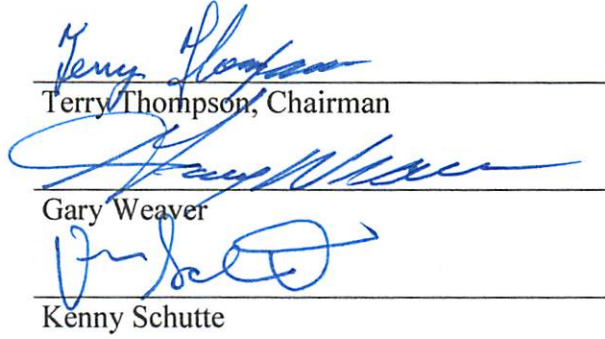 Terry Thompson
Terry Thompson, Chairman
Gary Weaver
Gary Weaver
Kenny Schutte